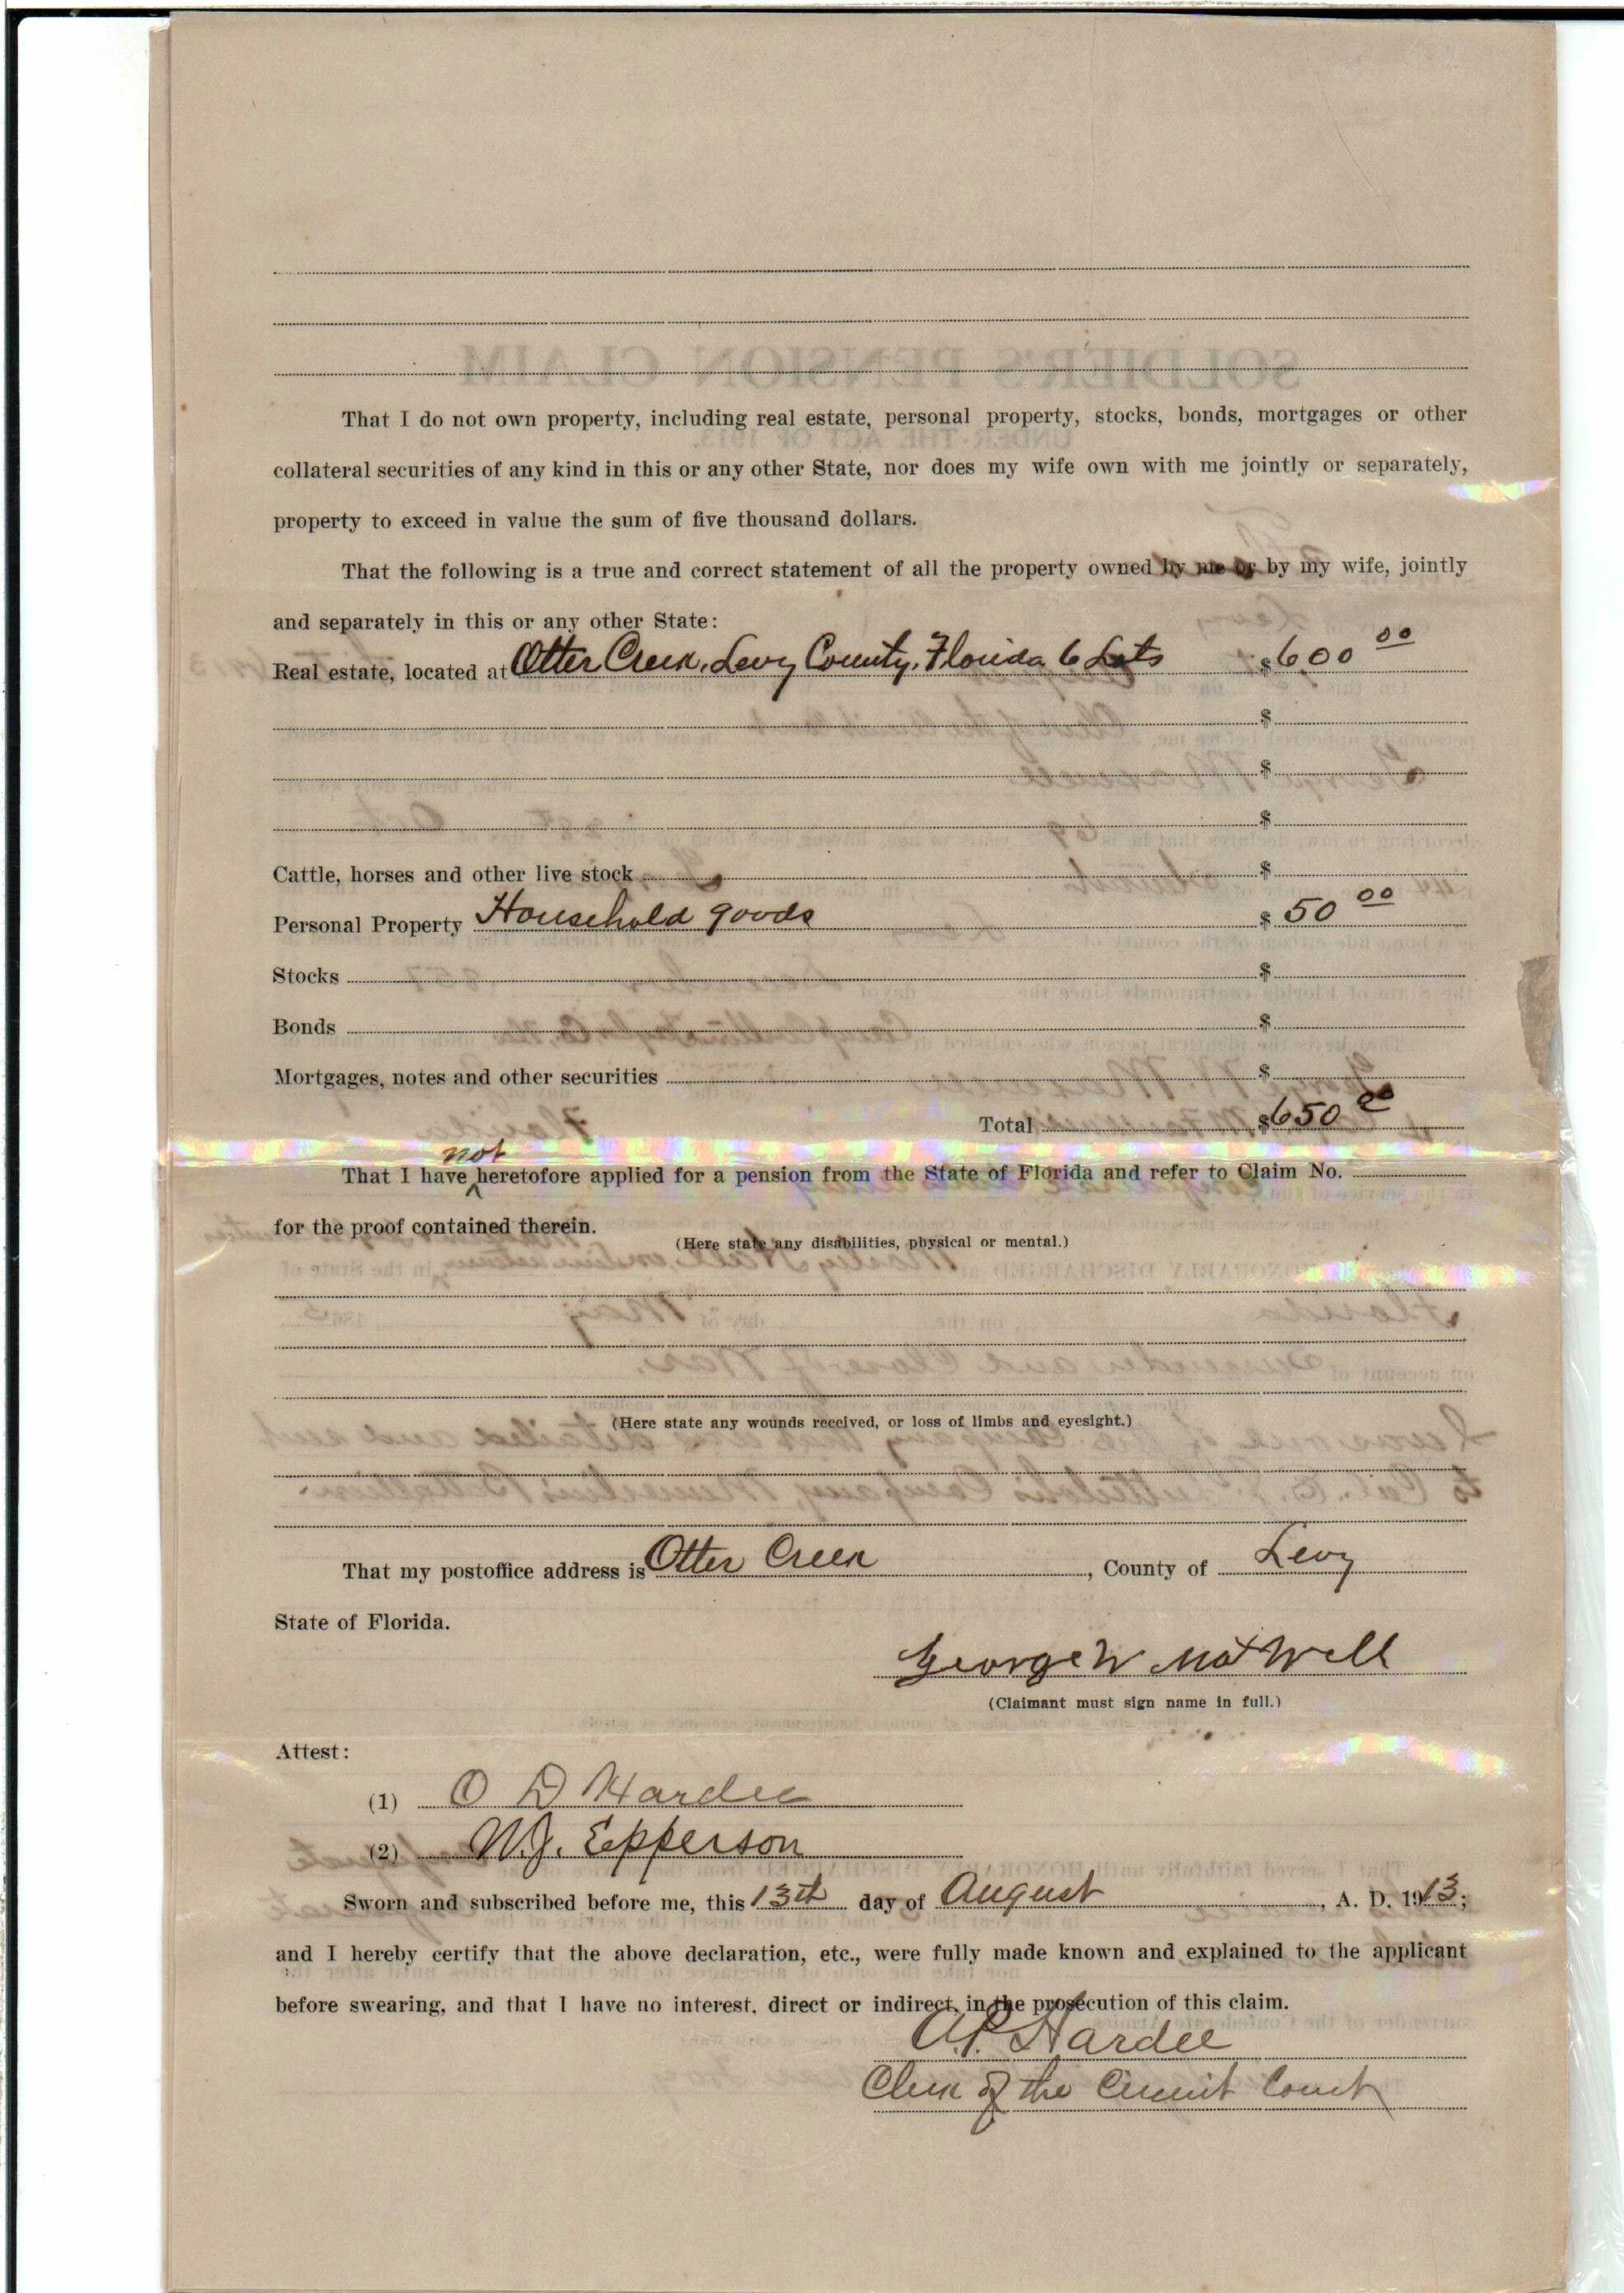 That I do not own property, including real estate, personal property, stocks, bonds, mortgages or other
collateral securities of any kind in this or any other State, nor does my wife own with me jointly or separately,
property to exceed in value the sum of five thousand dollars.
That the following is a true and correct statement of all the property owned by me or by my wife, jointly
and separately in this or any other State:
Real estate, located at Otter Creek, Levy County, Florida 6 Lots $600 00
$
$
$
Cattle, horses and other live stock $
Personal Property Household goods $50 00
Stocks $
Bonds $
Mortgages, notes and other securities $
Total $650 00
not
That I have heretofore applied for a pension from the State of Florida and refer to Claim No.
for the proof contained therein.
(Here state any disabilities, physical or mental.)
(Here state any wounds received, or loss of limbs and eyesight.)
That my postoffice address is Otter Creek, County of Levy
State of Florida.
George W Maxwell
(Claimant must sign name in full.)
Attest:
(1) O D Hardee
(2) W.J. Epperson
Sworn and subscribed before me, this 13th day of August, A. D. 1913;
and I hereby certify that the above declaration, etc., were fully made known and explained to the applicant
before swearing, and that I have no interest, direct or indirect, in the prosecution of this claim.
A.P. Hardee
Clerk of the Circuit Court